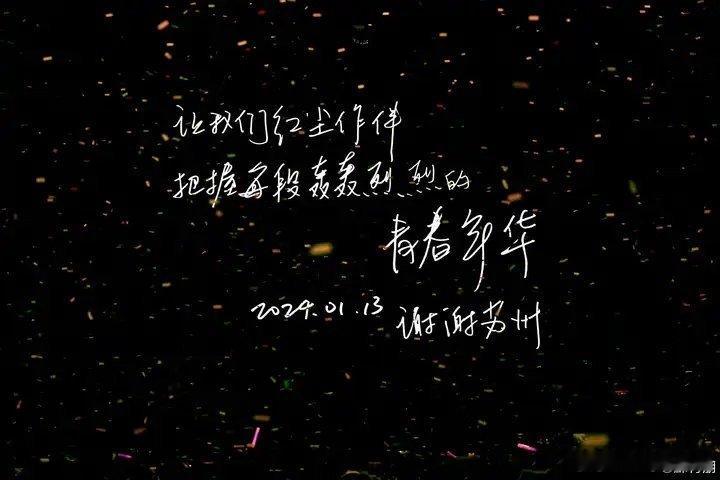 让我们红尘作伴
把握每段轰轰烈烈的
青春年华
2024.01.13 谢谢苏州